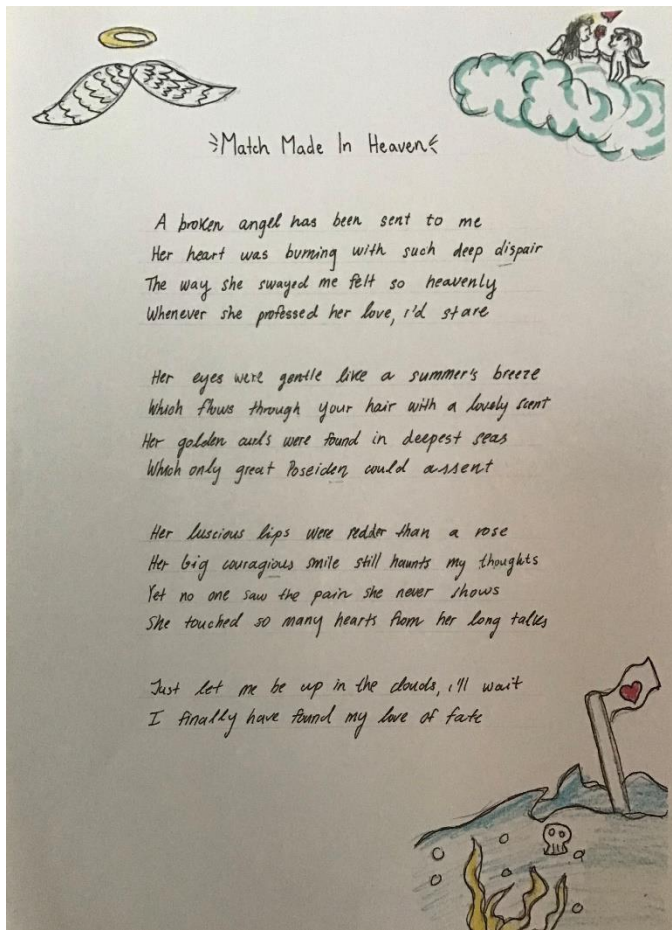 Match Made In Heaven
A broken angel has been sent to me
Her heart was burning with such deep dispair
The way she swayed me felt so heavenly
Whenever she professed her love, i'd stare
Her eyes were gentle like a summer's breeze
Which flows through your hair with a lovely scent
Her golden curls were found in deepest seas
Which only great Poseiden could assent
Her luscious lips were redder than a rose
Her big couragious smile still haunts my thoughts
Yet no one saw the pain she never shows
She touched so many hearts from her long talks
Just let me be up in the clouds, i'll wait
I finally have found my love of fate